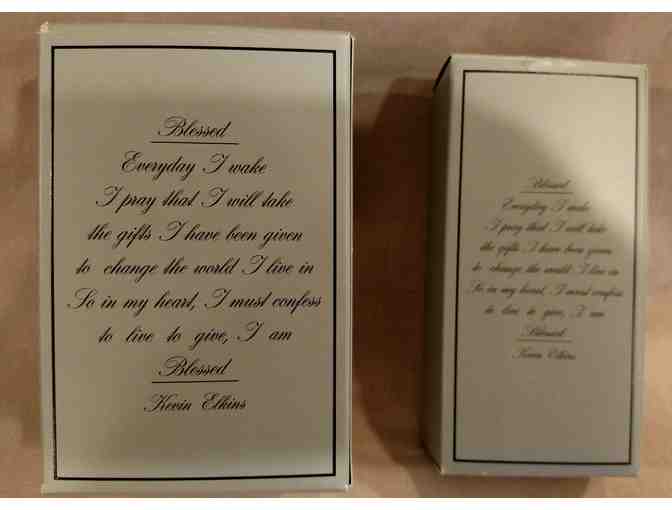 Blessed
Everyday I wake
I pray that I will take
the gifts I have been given
to change the world I live in
So in my heart, I must confess
to live to give, I am
Blessed
Kevin Elkins
Blessed
Everyday I wake
I pray that I will take
the gifts I have been given
to change the world I live in
So in my heart, I must confess
to live to give, I am
Blessed
Kevin Elkins